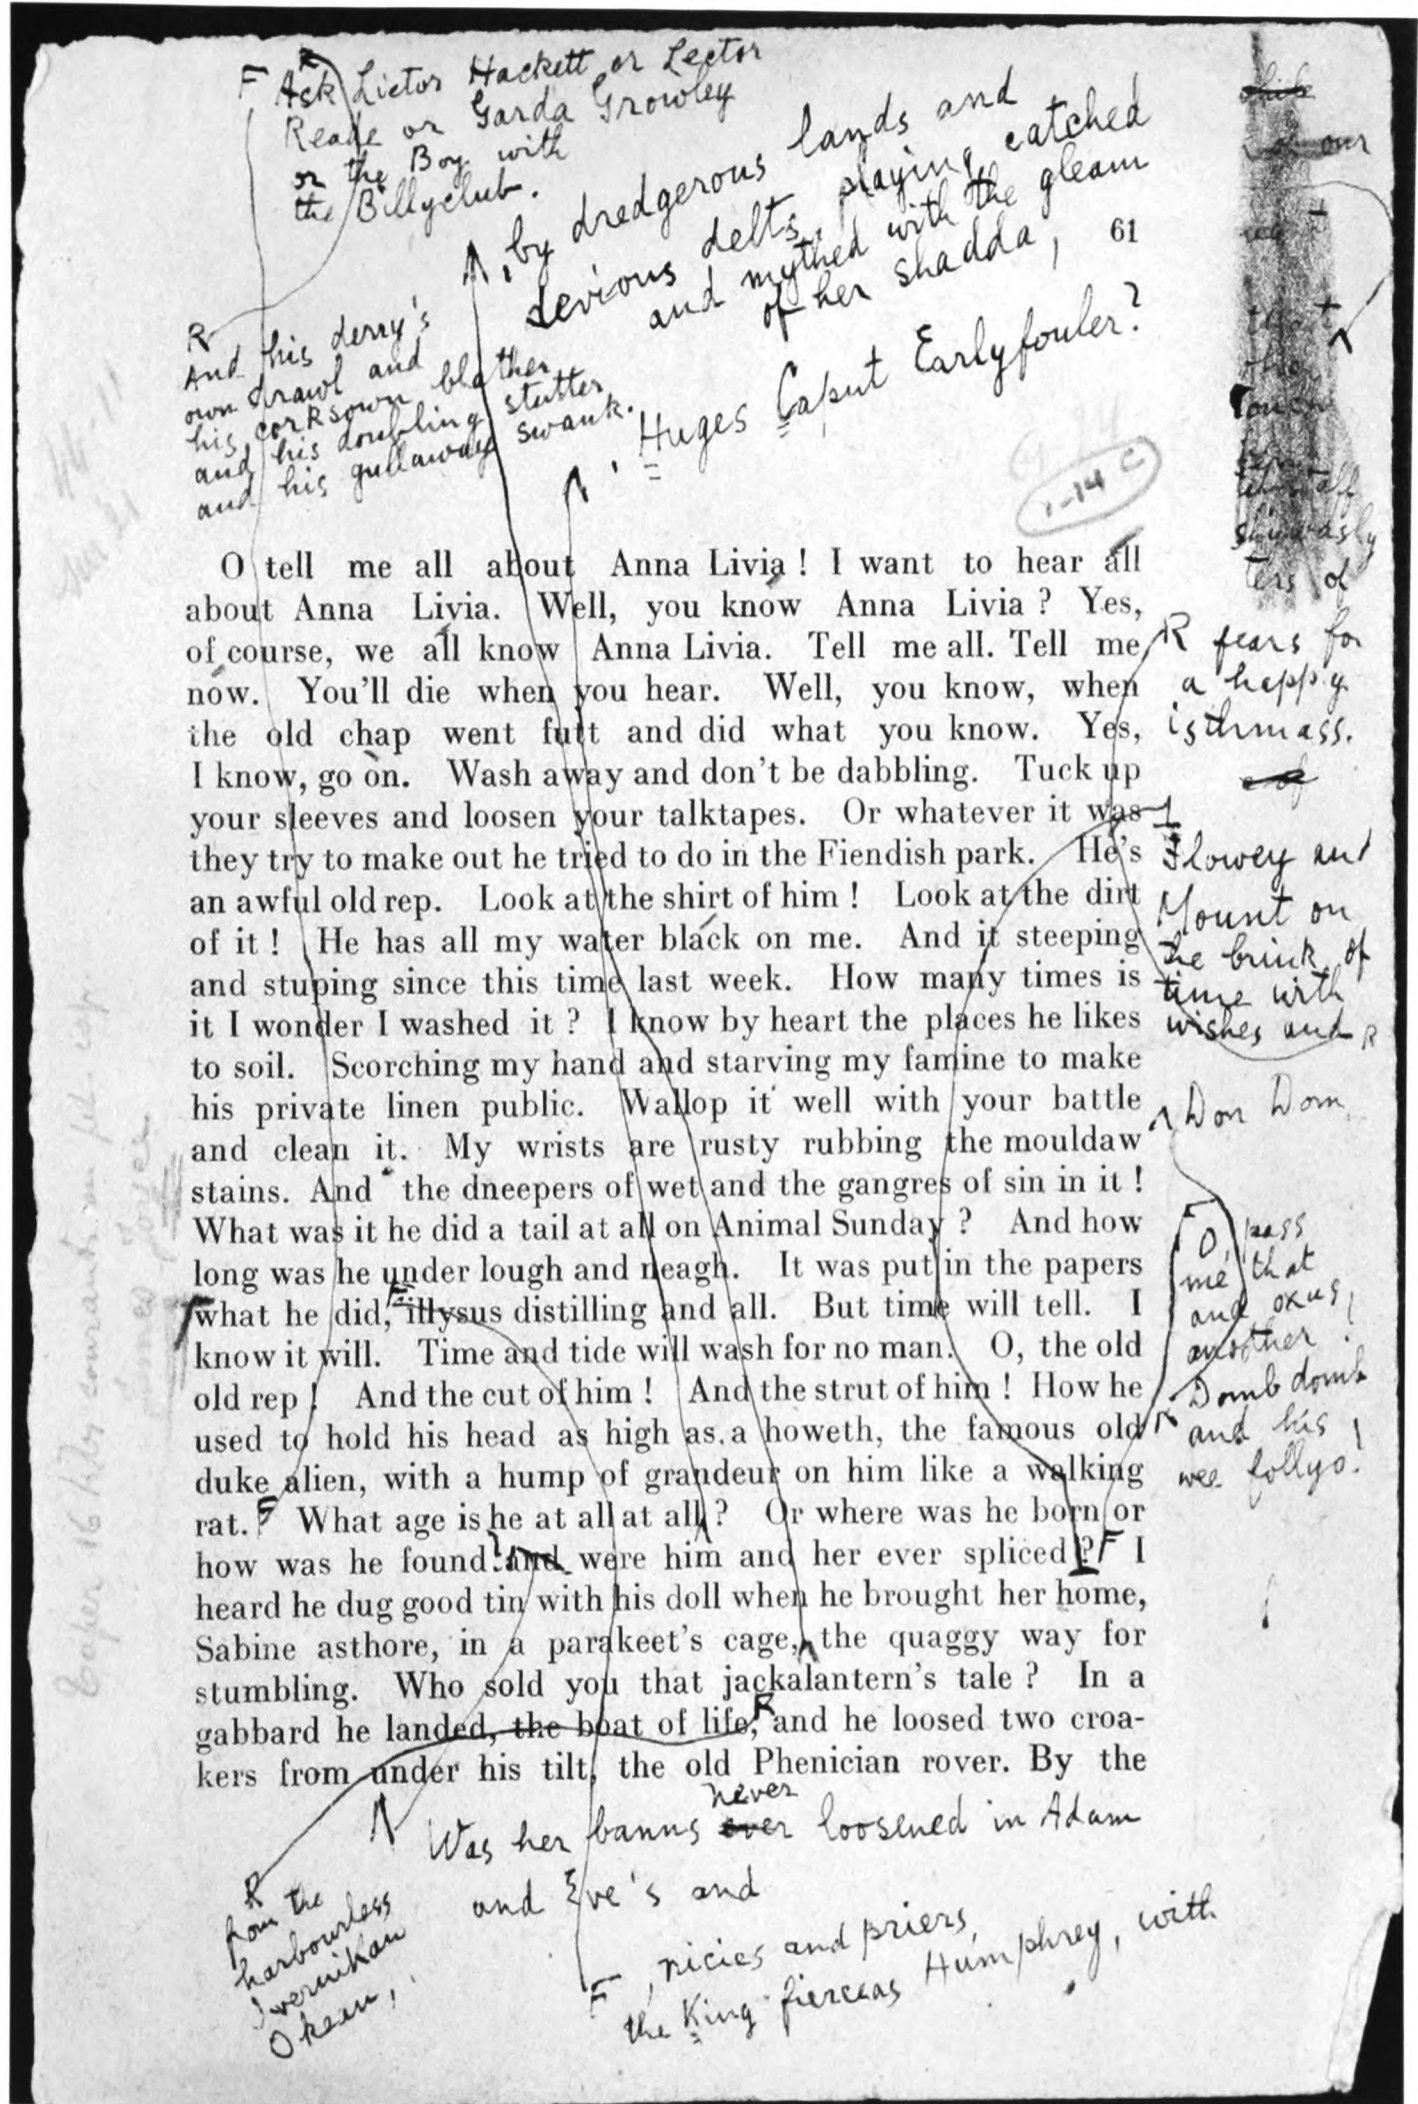 F Ask Lictor Hackett or Lector
Reade or Garda Growley
or the Boy with
the Billyclub.
, by dredgerous lands and
devious delts, playing catched
and mythed with the gleam
of her shadda,
61
R
And his derry's
own drawl and
his corksown blather
and his doubling stutter
and his gullaway swank.
Huges Caput Earlyfouler?
1-14 C
O tell me all about Anna Livia ! I want to hear all
about Anna Livia. Well, you know Anna Livia ? Yes,
of course, we all know Anna Livia. Tell me all. Tell me
now. You'll die when you hear. Well, you know, when
the old chap went futt and did what you know. Yes,
I know, go on. Wash away and don't be dabbling. Tuck up
your sleeves and loosen your talktapes. Or whatever it was
they try to make out he tried to do in the Fiendish park. He's
an awful old rep. Look at the shirt of him ! Look at the dirt
of it ! He has all my water black on me. And it steeping
and stuping since this time last week. How many times is
it I wonder I washed it ? I know by heart the places he likes
to soil. Scorching my hand and starving my famine to make
his private linen public. Wallop it well with your battle
and clean it. My wrists are rusty rubbing the mouldaw
stains. And the dneepers of wet and the gangres of sin in it !
What was it he did a tail at all on Animal Sunday ? And how
long was he under lough and neagh. It was put in the papers
what he did, illysus distilling and all. But time will tell. I
know it will. Time and tide will wash for no man. O, the old
old rep ! And the cut of him ! And the strut of him ! How he
used to hold his head as high as a howeth, the famous old
duke alien, with a hump of grandeur on him like a walking
rat. F What age is he at all at all ? Or where was he born or
how was he found ? and were him and her ever spliced ? F I
heard he dug good tin with his doll when he brought her home,
Sabine asthore, in a parakeet's cage, the quaggy way for
stumbling. Who sold you that jackalantern's tale ? In a
gabbard he landed, the boat of life, R and he loosed two croa-
kers from under his tilt, the old Phenician rover. By the
of our
the
ters of
R fears for
a happy
isthmass.
of
Flowey and
Mount on
the brink of
time with
wishes and R
Don Dom
O, pass
me that
and oxus
another !
Dombdomb
and his
wee follyo!
never
Was her banns ever loosened in Adam
and Eve's and
R
from the
harbourless
Ivernikan
Okean,
F , nicies and priers,
the King fierceas Humphrey, with